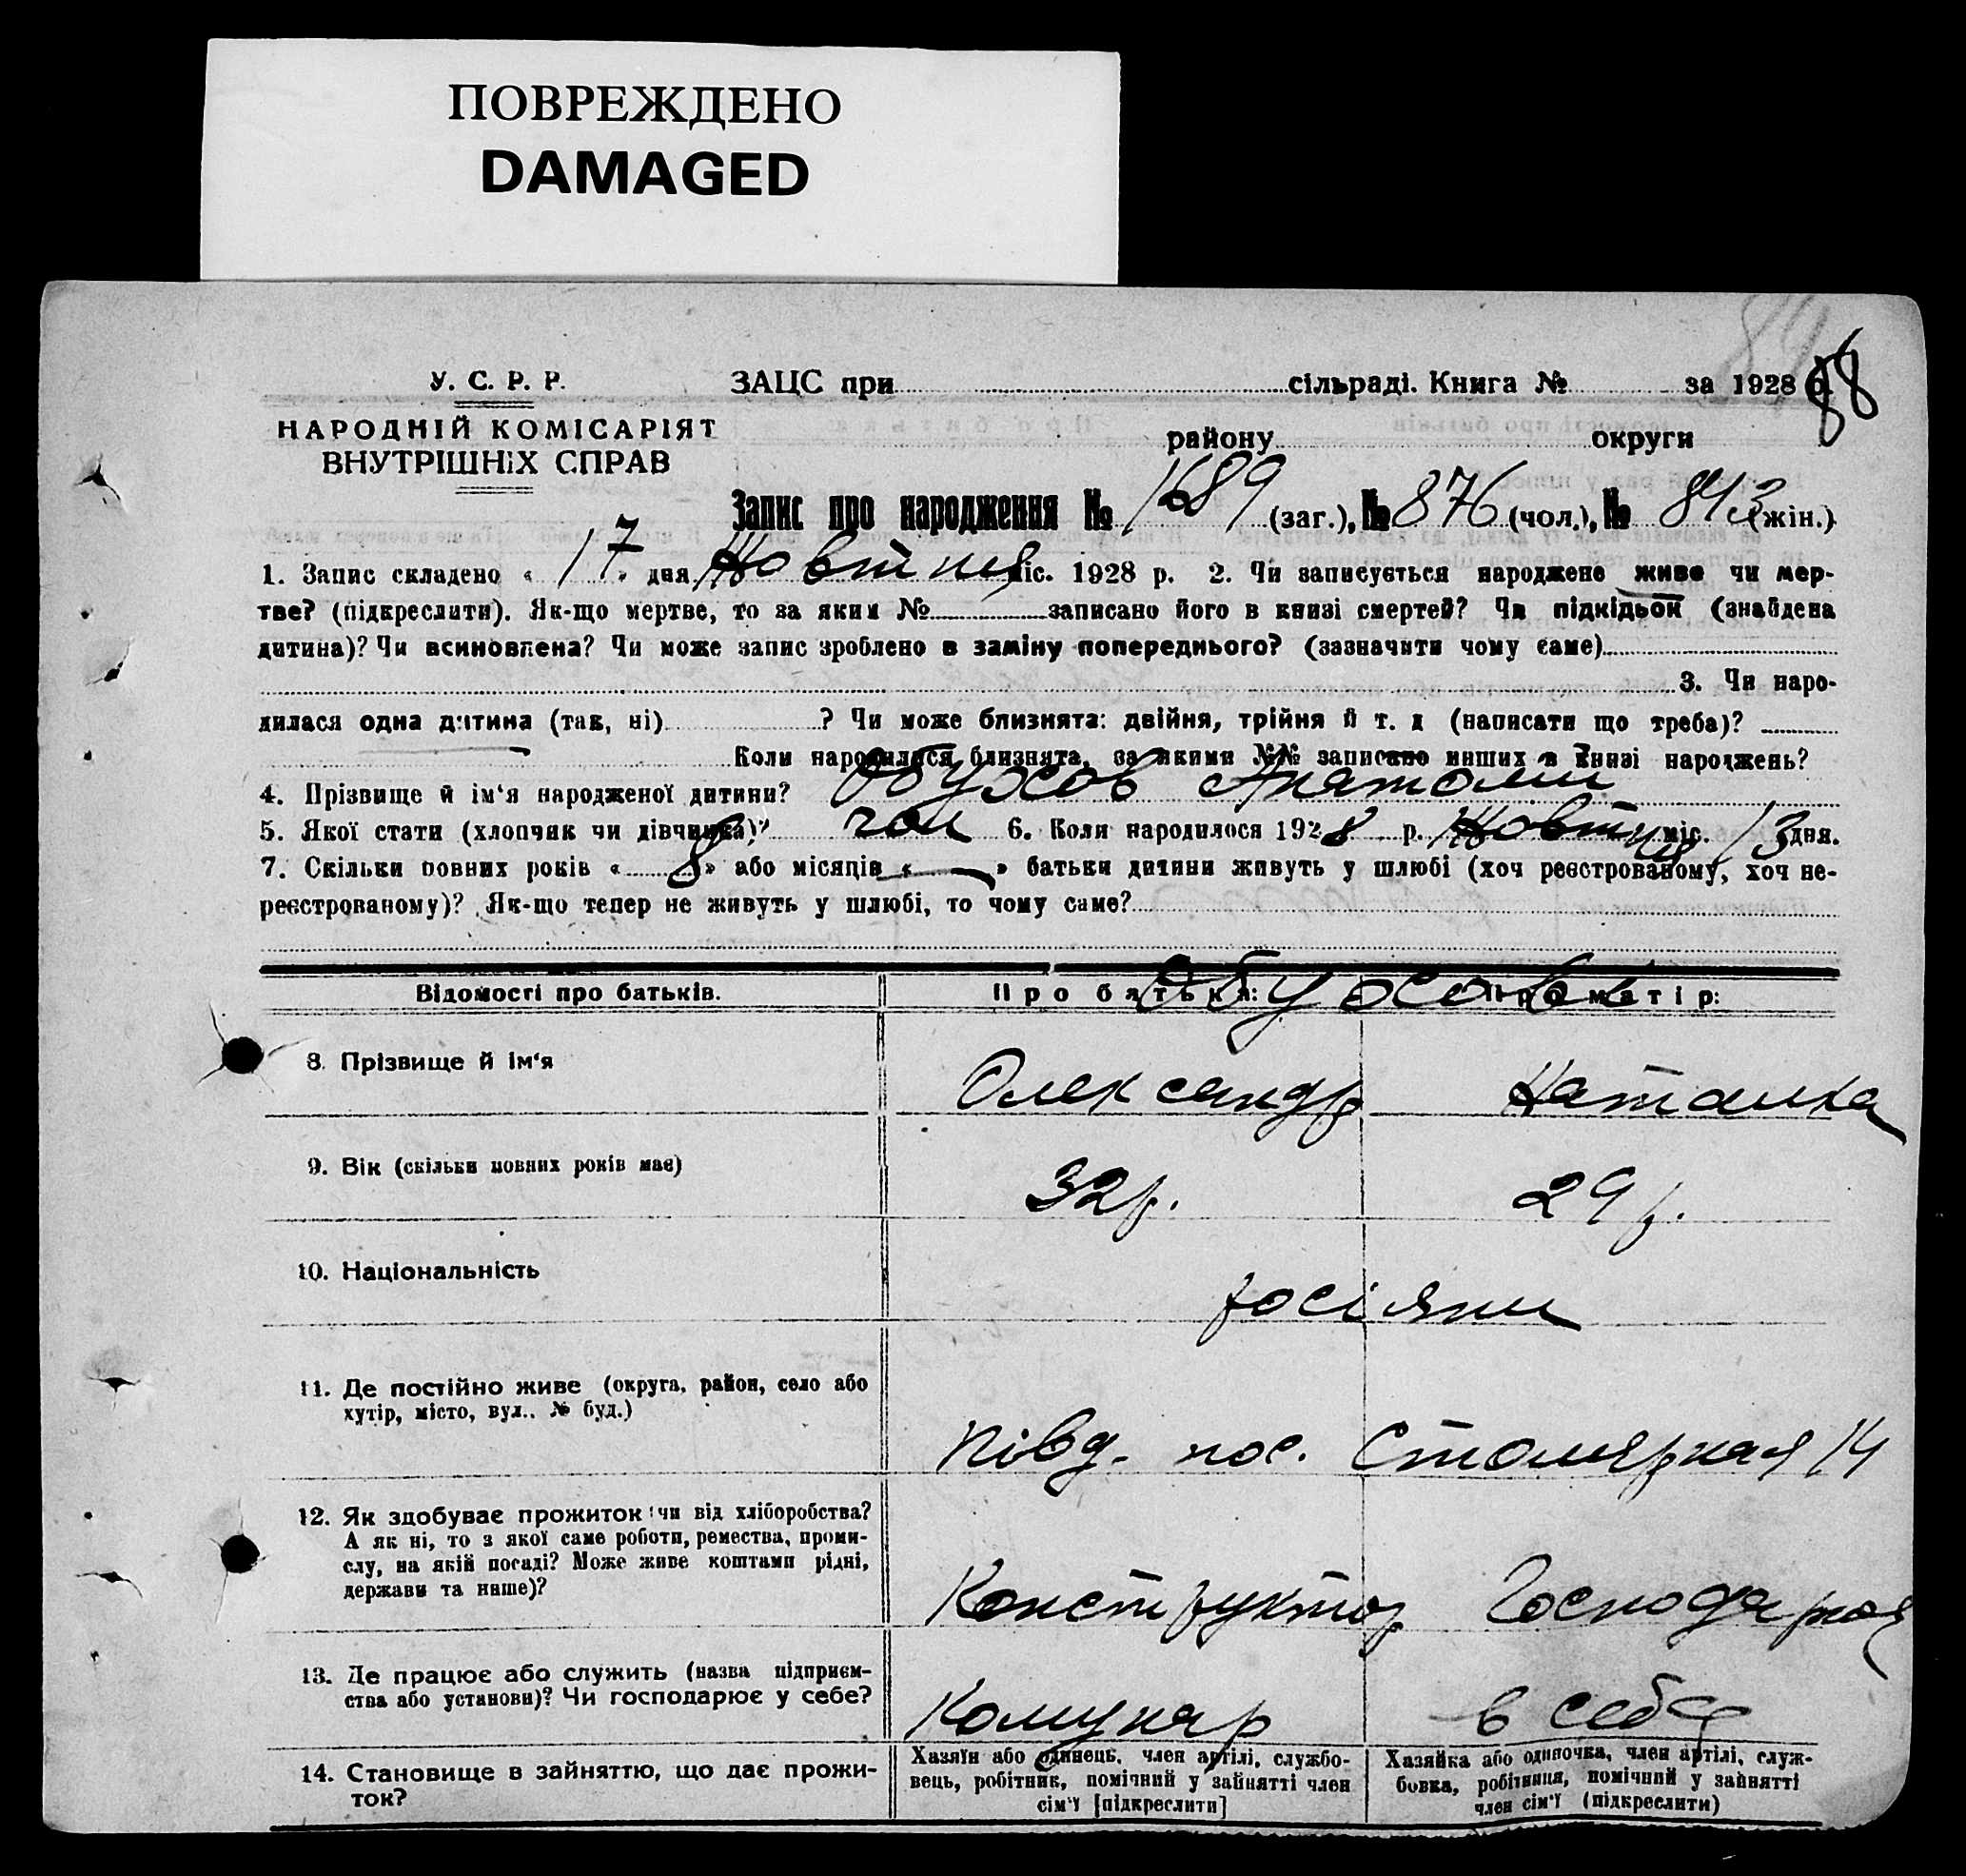 ПОВРЕЖДЕНО
DAMAGED
89
88
У. С. Р. Р.
НАРОДНІЙ КОМІСАРІЯТ
ВНУТРІШНІХ СПРАВ
ЗАЦС при сільраді. Книга № за 1928 р.
району округи
Запис про народження № 1689 (заг.), № 876 (чол.), № 813 (жін.)
1. Запис складено « 17 » дня Жовтня міс. 1928 р. 2. Чи записується народжене живе чи мер-
тве? (підкреслити). Як-що мертве, то за яким № записано його в книзі смертей? Чи підкідьок (знайдена
дитина)? Чи всиновлена? Чи може запис зроблено в заміну попереднього? (зазначити чому саме)
3. Чи наро-
дилася одна дитина (так, ні) ? Чи може близнята: двійня, трійня й т. д (написати що треба)?
Коли народилися близнята, за якими №№ записано инших в книзі народжень?
4. Прізвище й ім‘я народженої дитини? Обухов Анятолии
5. Якої стати (хлопчик чи дівчинка)? чол 6. Коли народилося 1928 р. Жовтня міс. 13 дня.
7. Скільки повних років « 8 » або місяців « — » батьки дитини живуть у шлюбі (хоч реєстрованому, хоч не-
реєстрованому)? Як-що тепер не живуть у шлюбі, то чому саме?
Відомості про батьків. Про батька: Про матір:
Обухови
8. Прізвище й ім‘я Олександр Наталка
9. Вік (скільки повних років має) 32р. 29 р.
10. Національність росіяни
11. Де постійно живе (округа, район, село або
хутір, місто, вул., № буд.)
Півд. пос. Столярная 14
12. Як здобуває прожиток: чи від хліборобства?
А як ні, то з якої саме роботи, ремества, проми-
слу, на якій посаді? Може живе коштами рідні,
держави та инше)?
Конструктор Господарная
13. Де працює або служить (назва підприєм-
ства або установи)? Чи господарює у себе?
Комунар в себе
14. Становище в зайняттю, що дає прожи-
ток?
Хазяїн або одинець, член артілі, службо-
вець, робітник, помічний у зайнятті член
сім‘ї [підкреслити]
Хазяйка або одиночка, член артілі, служ-
бовка, робітниця, помічний у зайнятті
член сім‘ї (підкреслити)